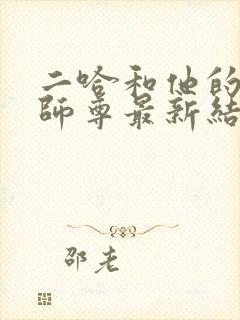 二哈和他的
師尊最新結
邵老